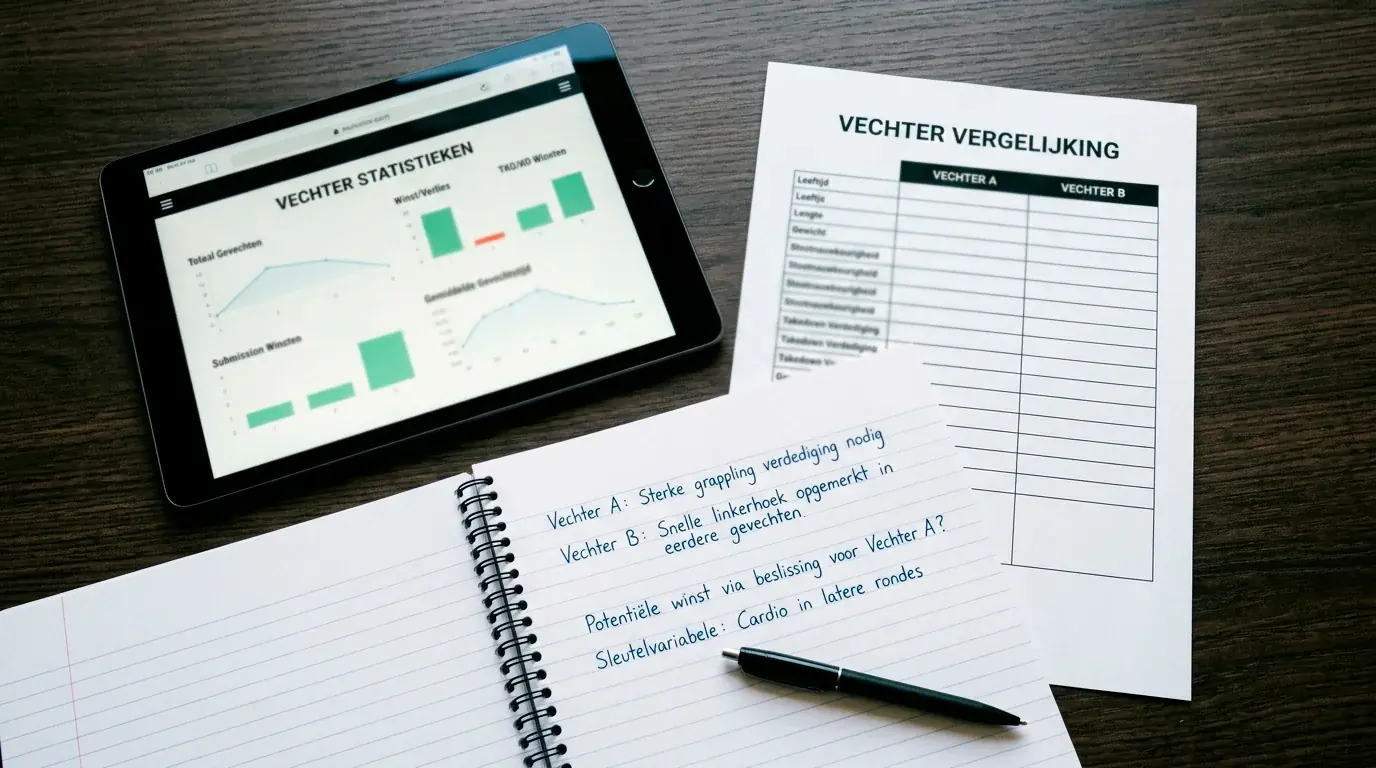 VECHTER STATISTIEKEN
Totaal Gevechten
Winst/Verlies
TKO/KO Winsten
Submission Winsten
Gemiddelde Gevechtstijd
VECHTER VERGELIJKING
VECHTER A
VECHTER B
Leeftijd
Leeftije
Lengte
Gewicht
Stootnauwkeurigheid
Stootnauwkeurigheid
Stootnauwkeurigheid
Stootnauwkeurigheid
Takedown Verdediging
Takedown Verdediging
Takedown
Vechter A: Sterke grappling verdediging nodig
Vechter B: Snelle linkerhoek opgemerkt in
eerdere gevechten.
Potentiële winst via beslissing voor Vechter A?
Sleutelvariabele: Cardio in latere rondes